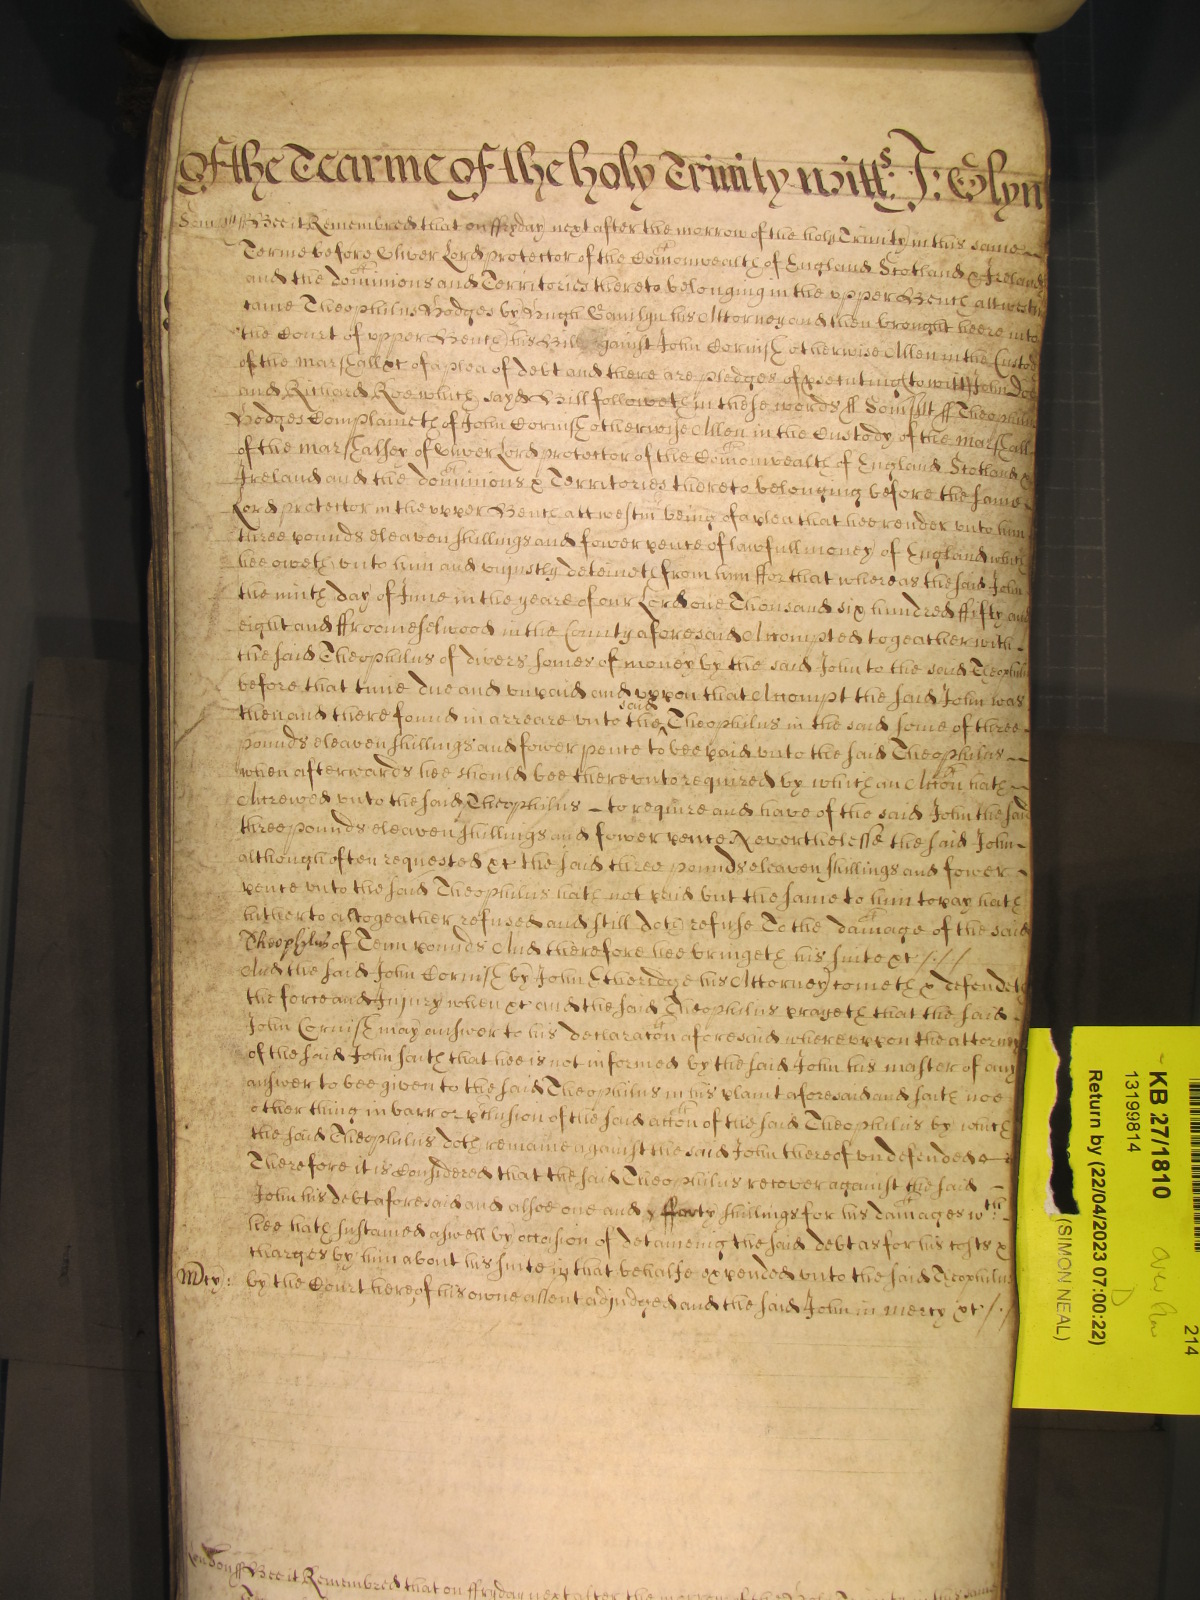 Of the Tearme of the holy Trinity witts: J: Glyn
Somsett ss Bee it Remembred that on ffryday next after the morrow of the holy Trinity in this same
Terme before Oliver Lord protector of the Comonwealth of England Scotland & Ireland
and the dominions and Territories thereto belonging in the upper Bench att westm
came Theophilus Hodges by Hugh his Attorney and then brought heere into
the Court of upper Bench his Bill against John Cornish otherwise Allen in the Custod
of the marshall &c of a plea of debt and there are pledges of prsecuting (to witt) John Doe
and Richard Roe which sayd Bill followeth in these words ss Somsett ss Theophilu
Hodges Complaineth of John Cornish otherwise Allen in the Custody of the marshall
of the marshalsey of Oliver Lord protector of the Comonwealth of England Scotland &
Ireland and the dominions & Territories thereto belonging before the same
Lord protector in the upper Bench att westm being of a plea that hee render unto him
three pounds eleaven shillings and fower pence of lawfull money of England which
hee oweth unto him and uniustly deteineth from him ffor that whereas the said John
the ninth day of June in the yeare of our Lord one Thousand six hundred ffifty and
eight and ffroomeselwood in the County aforesaid Accompted togeather with
the said Theophilus of divers somes of money by the said John to the said Theophilu
before that time due and unpaid and uppon that Accompt the said John was
then and there found in arreare unto the said Theophilus in the said some of three
pounds eleaven shillings and fower pence to bee paid unto the said Theophilus
when afterwards hee should bee thereunto required by which an Accon hath
Accrewed unto the said Theophilus to require and have of the said John the said
three pounds eleaven shillings and fower pence Neverthelesse the said John
although often requested &c the said three pounds eleaven shillings and fower
pence unto the said Theophilus hath not paid but the same to him to pay hath
hitherto altogeather refused and still doth refuse To the damage of the said
Theophilus of Tenn pounds And therefore hee bringeth his suite &c
And the said John Cornish by John Etheridge his Attorney cometh & defendeth
the force and Injury when &c and the said Theophilus prayeth that the said
John Cornish may answer to his declaracon aforesaid whereuppon the attorney
of the said John saith that hee is not informed by the said John his master of any
answer to bee given to the said Theophilus in his plaint aforesaid and saith noe
other thing in barr or pclusion of the said accon of the said Theophilus by which
the said Theophilus doth remaine against the said John thereof undefended
Therefore it is Considered that the said Theophilus recover against the said
John his debt aforesaid and alsoe one and fforty shillings for his damages wch
hee hath sustained aswell by occasion of deteineing the said debt as for his costs &
charges by him about his suite in that behalfe expended unto the said Theophilus
Mcy: by the Court heere of his owne assent adjudged and the said John in mercy &c
London ss Bee it Remembred that on ffryday next after the morrow of the Holy Trinity in this same
KB 27/1810
13199814
Return by (22/04/2023 07:00:22)
(SIMON NEAL)
D
214